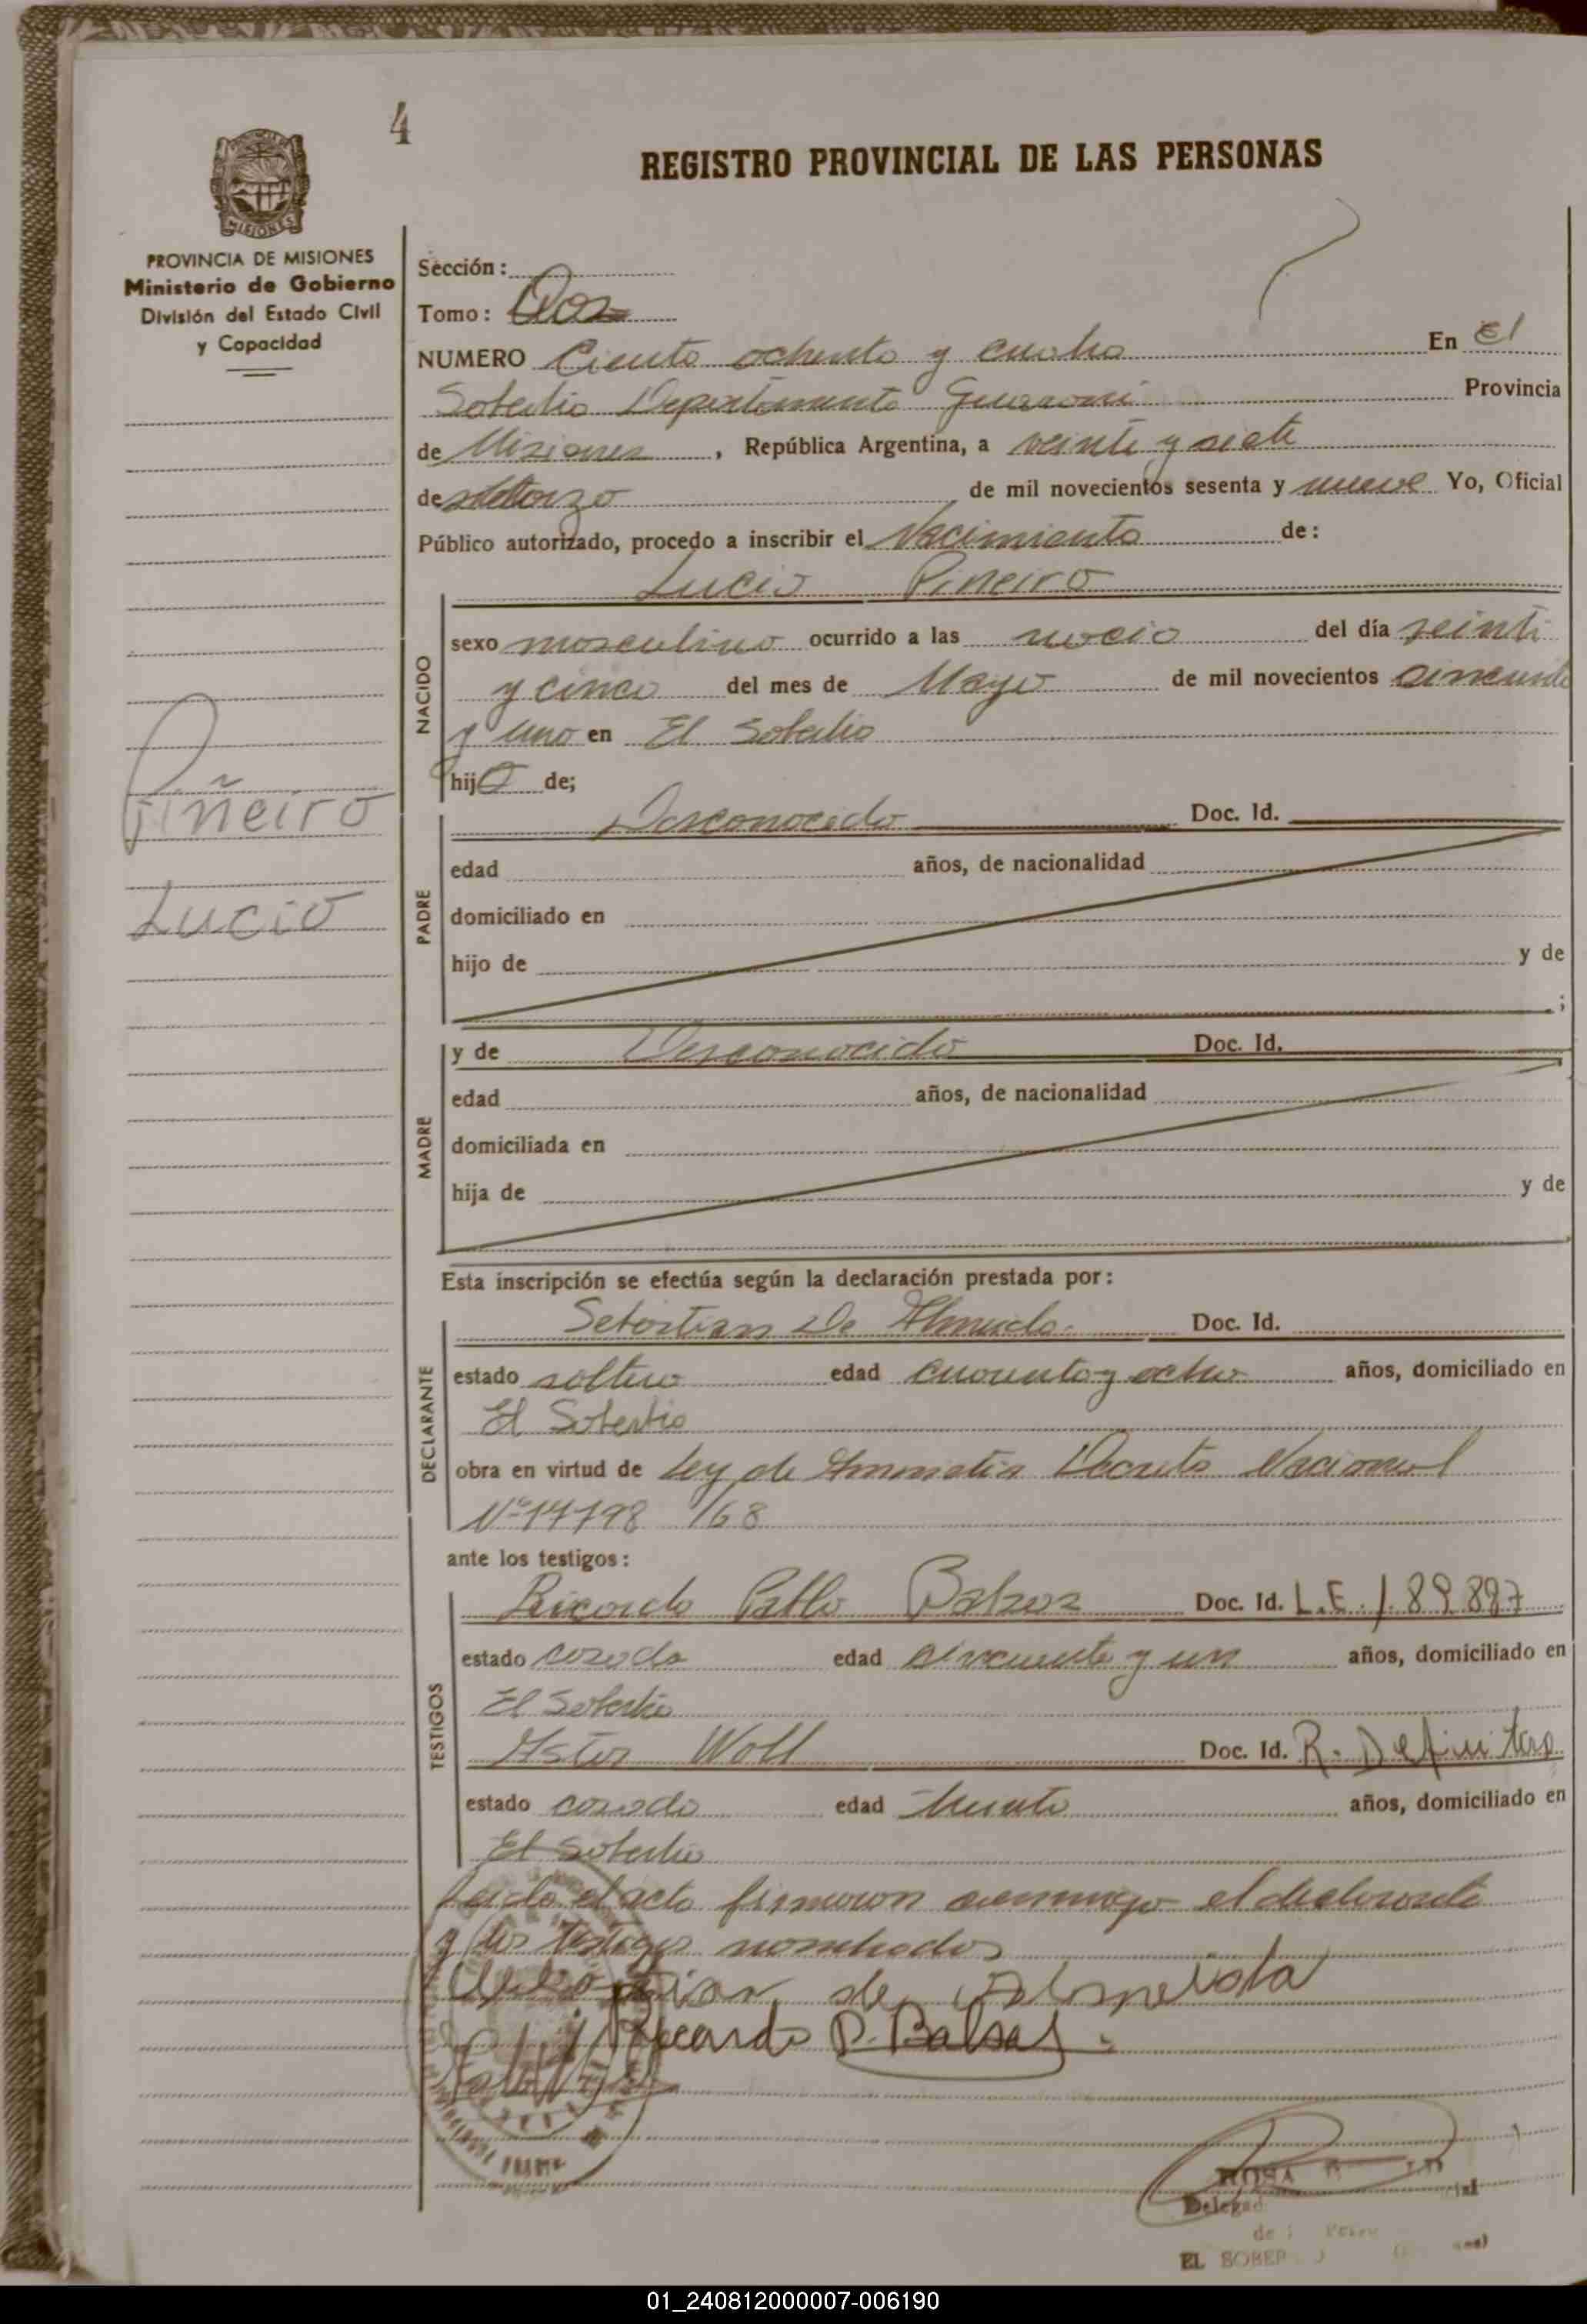 4
REGISTRO PROVINCIAL DE LAS PERSONAS
MISIONES
PROVINCIA DE MISIONES
Ministerio de Gobierno
División del Estado Civil
y Capacidad
Sección:
Tomo: Dos
NUMERO Ciento ochenta y cuatro En El
Soberbio Departamento Guarani Provincia
de Misiones, República Argentina, a veinte y siete
de Marzo de mil novecientos sesenta y nueve Yo, Oficial
Público autorizado, procedo a inscribir el Nacimiento de:
Lucio Piñeiro
NACIDO
sexo masculino ocurrido a las del día veinti
y cinco del mes de Mayo de mil novecientos cincuenta
y uno en El Soberbio
hijo de;
Piñeiro
Lucio
PADRE
Desconocido Doc. Id.
edad años, de nacionalidad
domiciliado en
hijo de y de
;
MADRE
y de Desconocido Doc. Id.
edad años, de nacionalidad
domiciliada en
hija de y de
Esta inscripción se efectúa según la declaración prestada por:
DECLARANTE
Sebastian De Almeida Doc. Id.
estado soltero edad cuarenta y ocho años, domiciliado en
El Soberbio
obra en virtud de Ley de Amnistia Decreto Nacional
Nº 17798/68
ante los testigos:
TESTIGOS
Ricardo Pablo Balzaz Doc. Id. L.E. 1.89.887
estado casado edad cincuenta y un años, domiciliado en
El Soberbio
Woll Doc. Id. R.
estado casado edad treinta años, domiciliado en
El Soberbio
Leida el acta firmaron conmigo el declarante
y los testigos nombrados
Sebastian de Almeida
Ricardo P. Balsas
ROSA
Delegad
EL SOBER
01_240812000007-006190